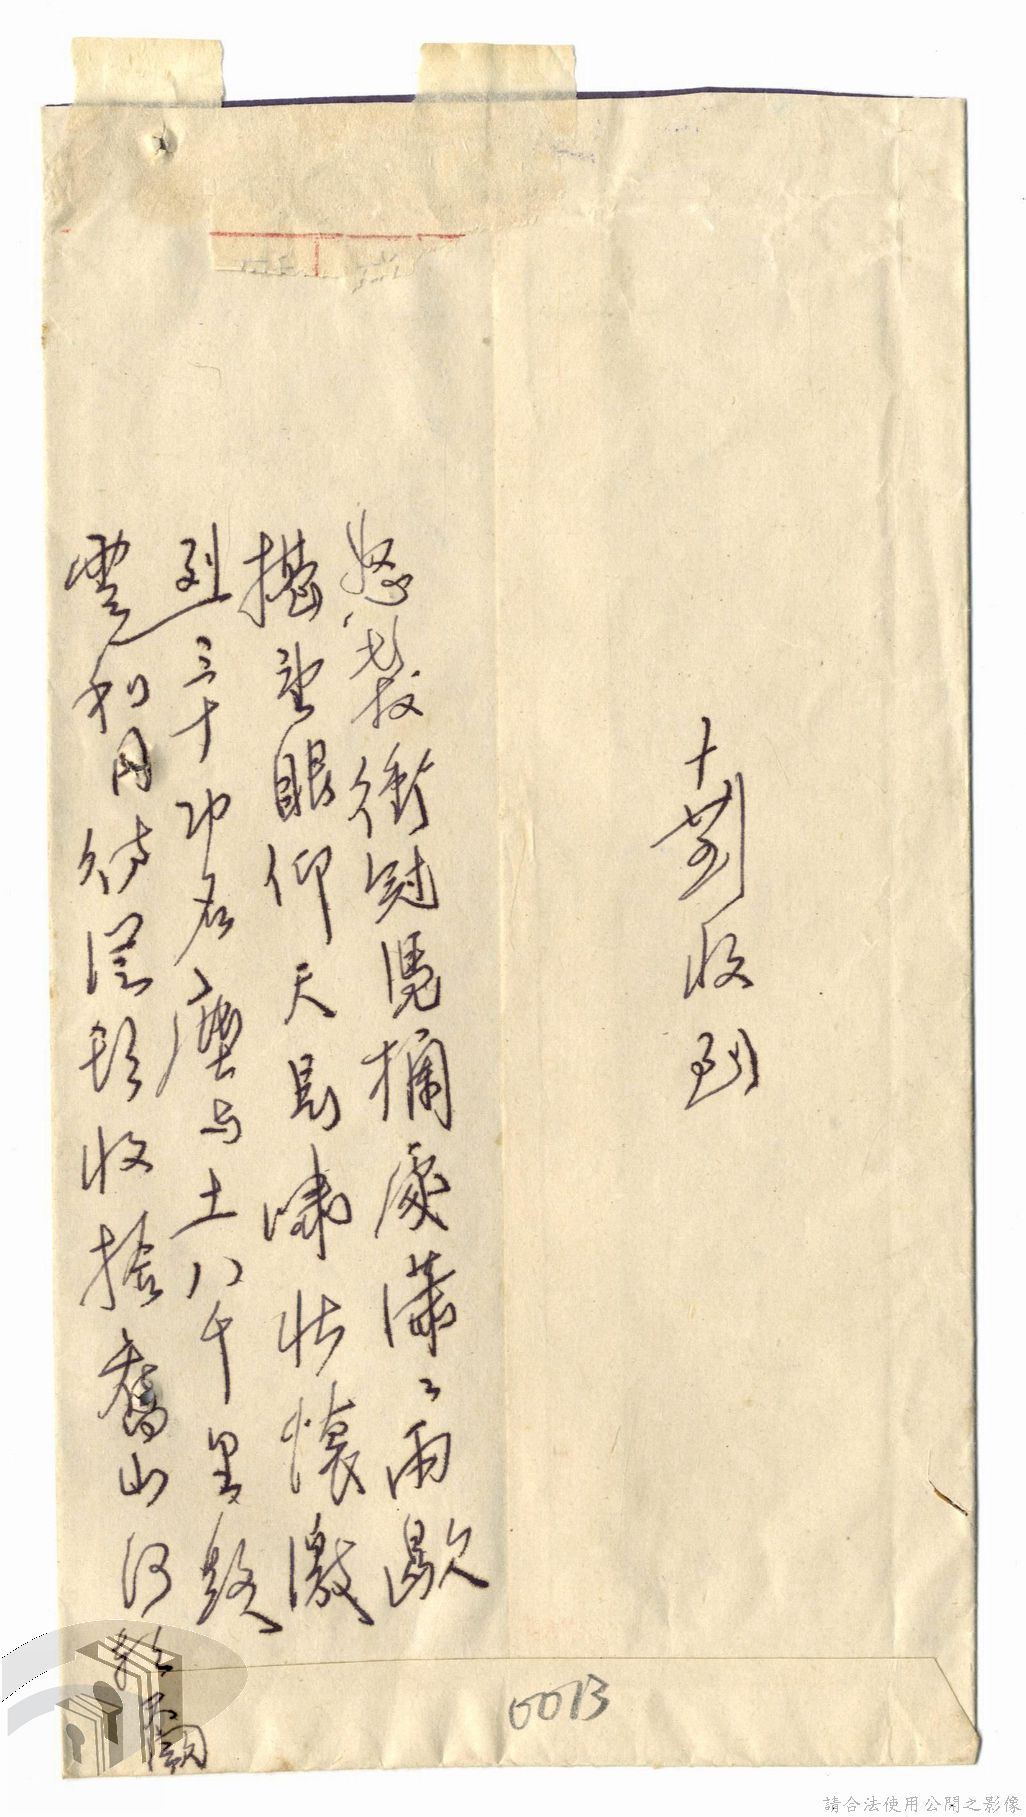 收到
怒髮衝冠憑欄處瀟々雨歇
擡望眼仰天長嘯壯懷激
烈三十功名塵与土八千里路
雲和月待從頭收拾舊山河朝天闕
0013
請合法使用公開之影像